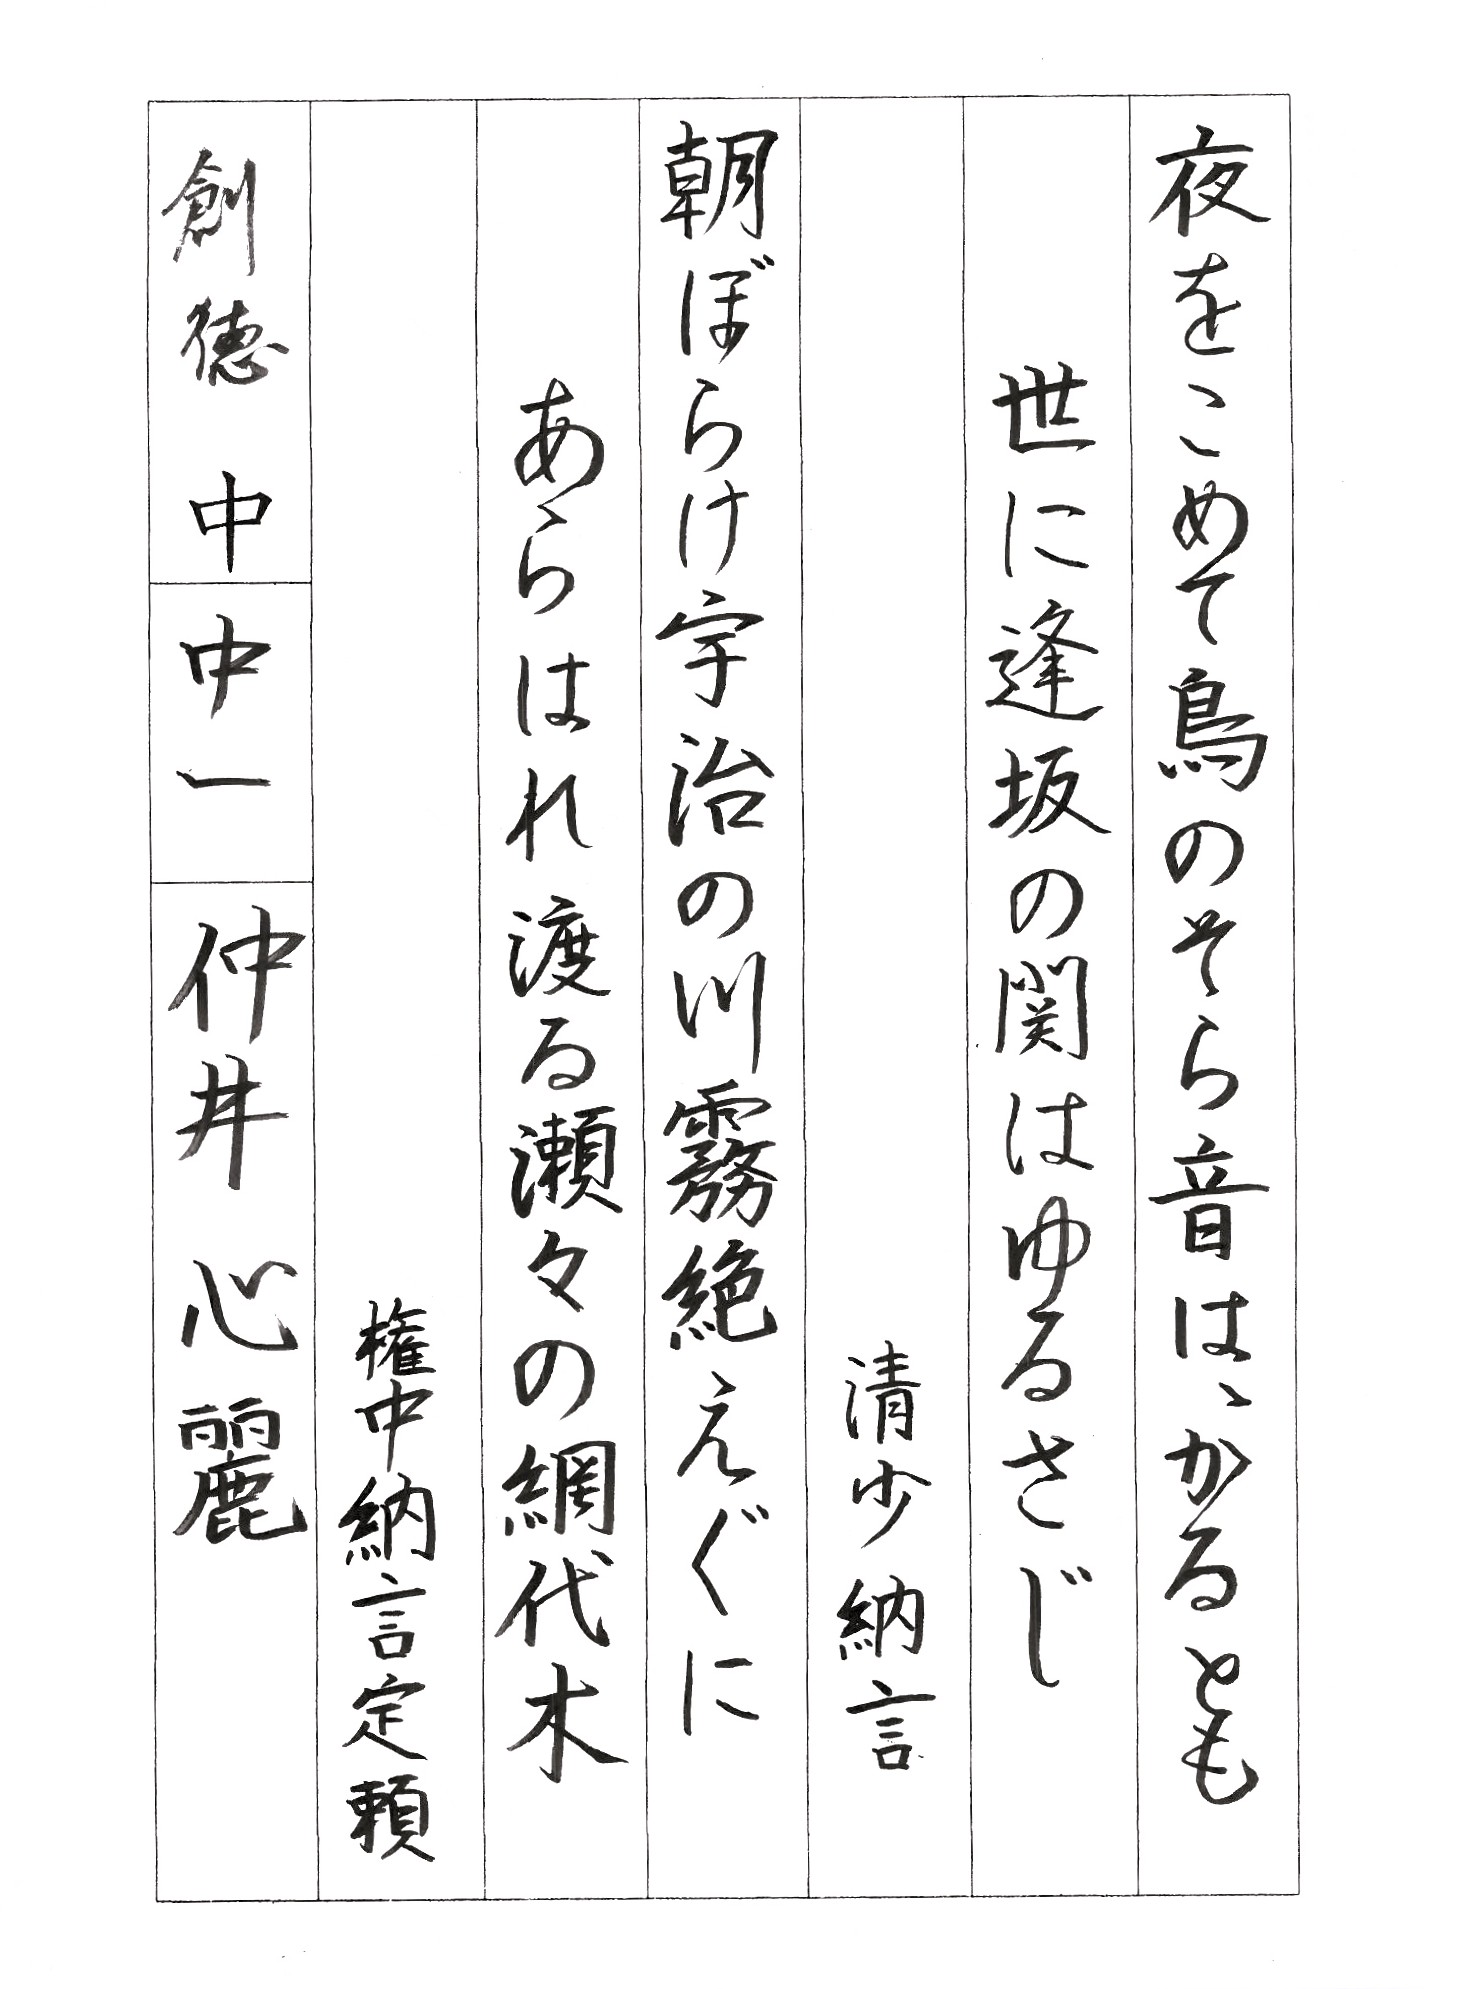 夜をこめて鳥のそら音ははかるとも
世に逢坂の関はゆるさじ
清少納言
朝ぼらけ宇治の川霧絶えぐに
あらはれ渡る瀬々の網代木
権中納言定頼
創徳中
中一
仲井心麗